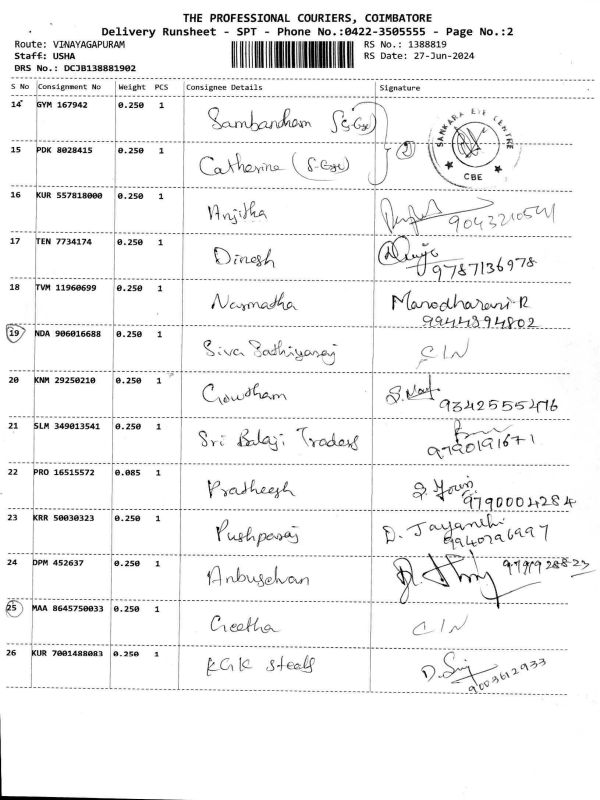 THE PROFESSIONAL COURIERS, COIMBATORE
Delivery Runsheet - SPT - Phone No.:0422-3505555 - Page No.:2
Route: VINAYAGAPURAM
RS No.: 1388819
Staff: USHA
RS Date: 27-Jun-2024
DRS No.: DCJB138881902
S No Consignment No Weight PCS Consignee Details Signature
14 GYM 167942 0.250 1 Sambandham
15 PDK 8028415 0.250 1 Catherine
2
SANKARA EYE CENTRE
CBE
16 KUR 557818000 0.250 1 Anjitha
17 TEN 7734174 0.250 1 Dinesh 9787136978
18 TVM 11960699 0.250 1 Narmatha Manodharani-R
9944894802
19 NDA 906016688 0.250 1 Siva Sathiyaraj CIN
20 KNM 29250210 0.250 1 Gowtham 9342555476
21 SLM 349013541 0.250 1 Sri Balaji Traders 9790191671
22 PRO 16515572 0.085 1 Pratheesh
9790004284
23 KRR 50030323 0.250 1 Pushparaj D. Jayanthi
9940296997
24 DPM 452637 0.250 1 Anbuselvan
25 MAA 8645750033 0.250 1 Geetha CIN
26 KUR 7001488083 0.250 1 KGK Steels
9003612933